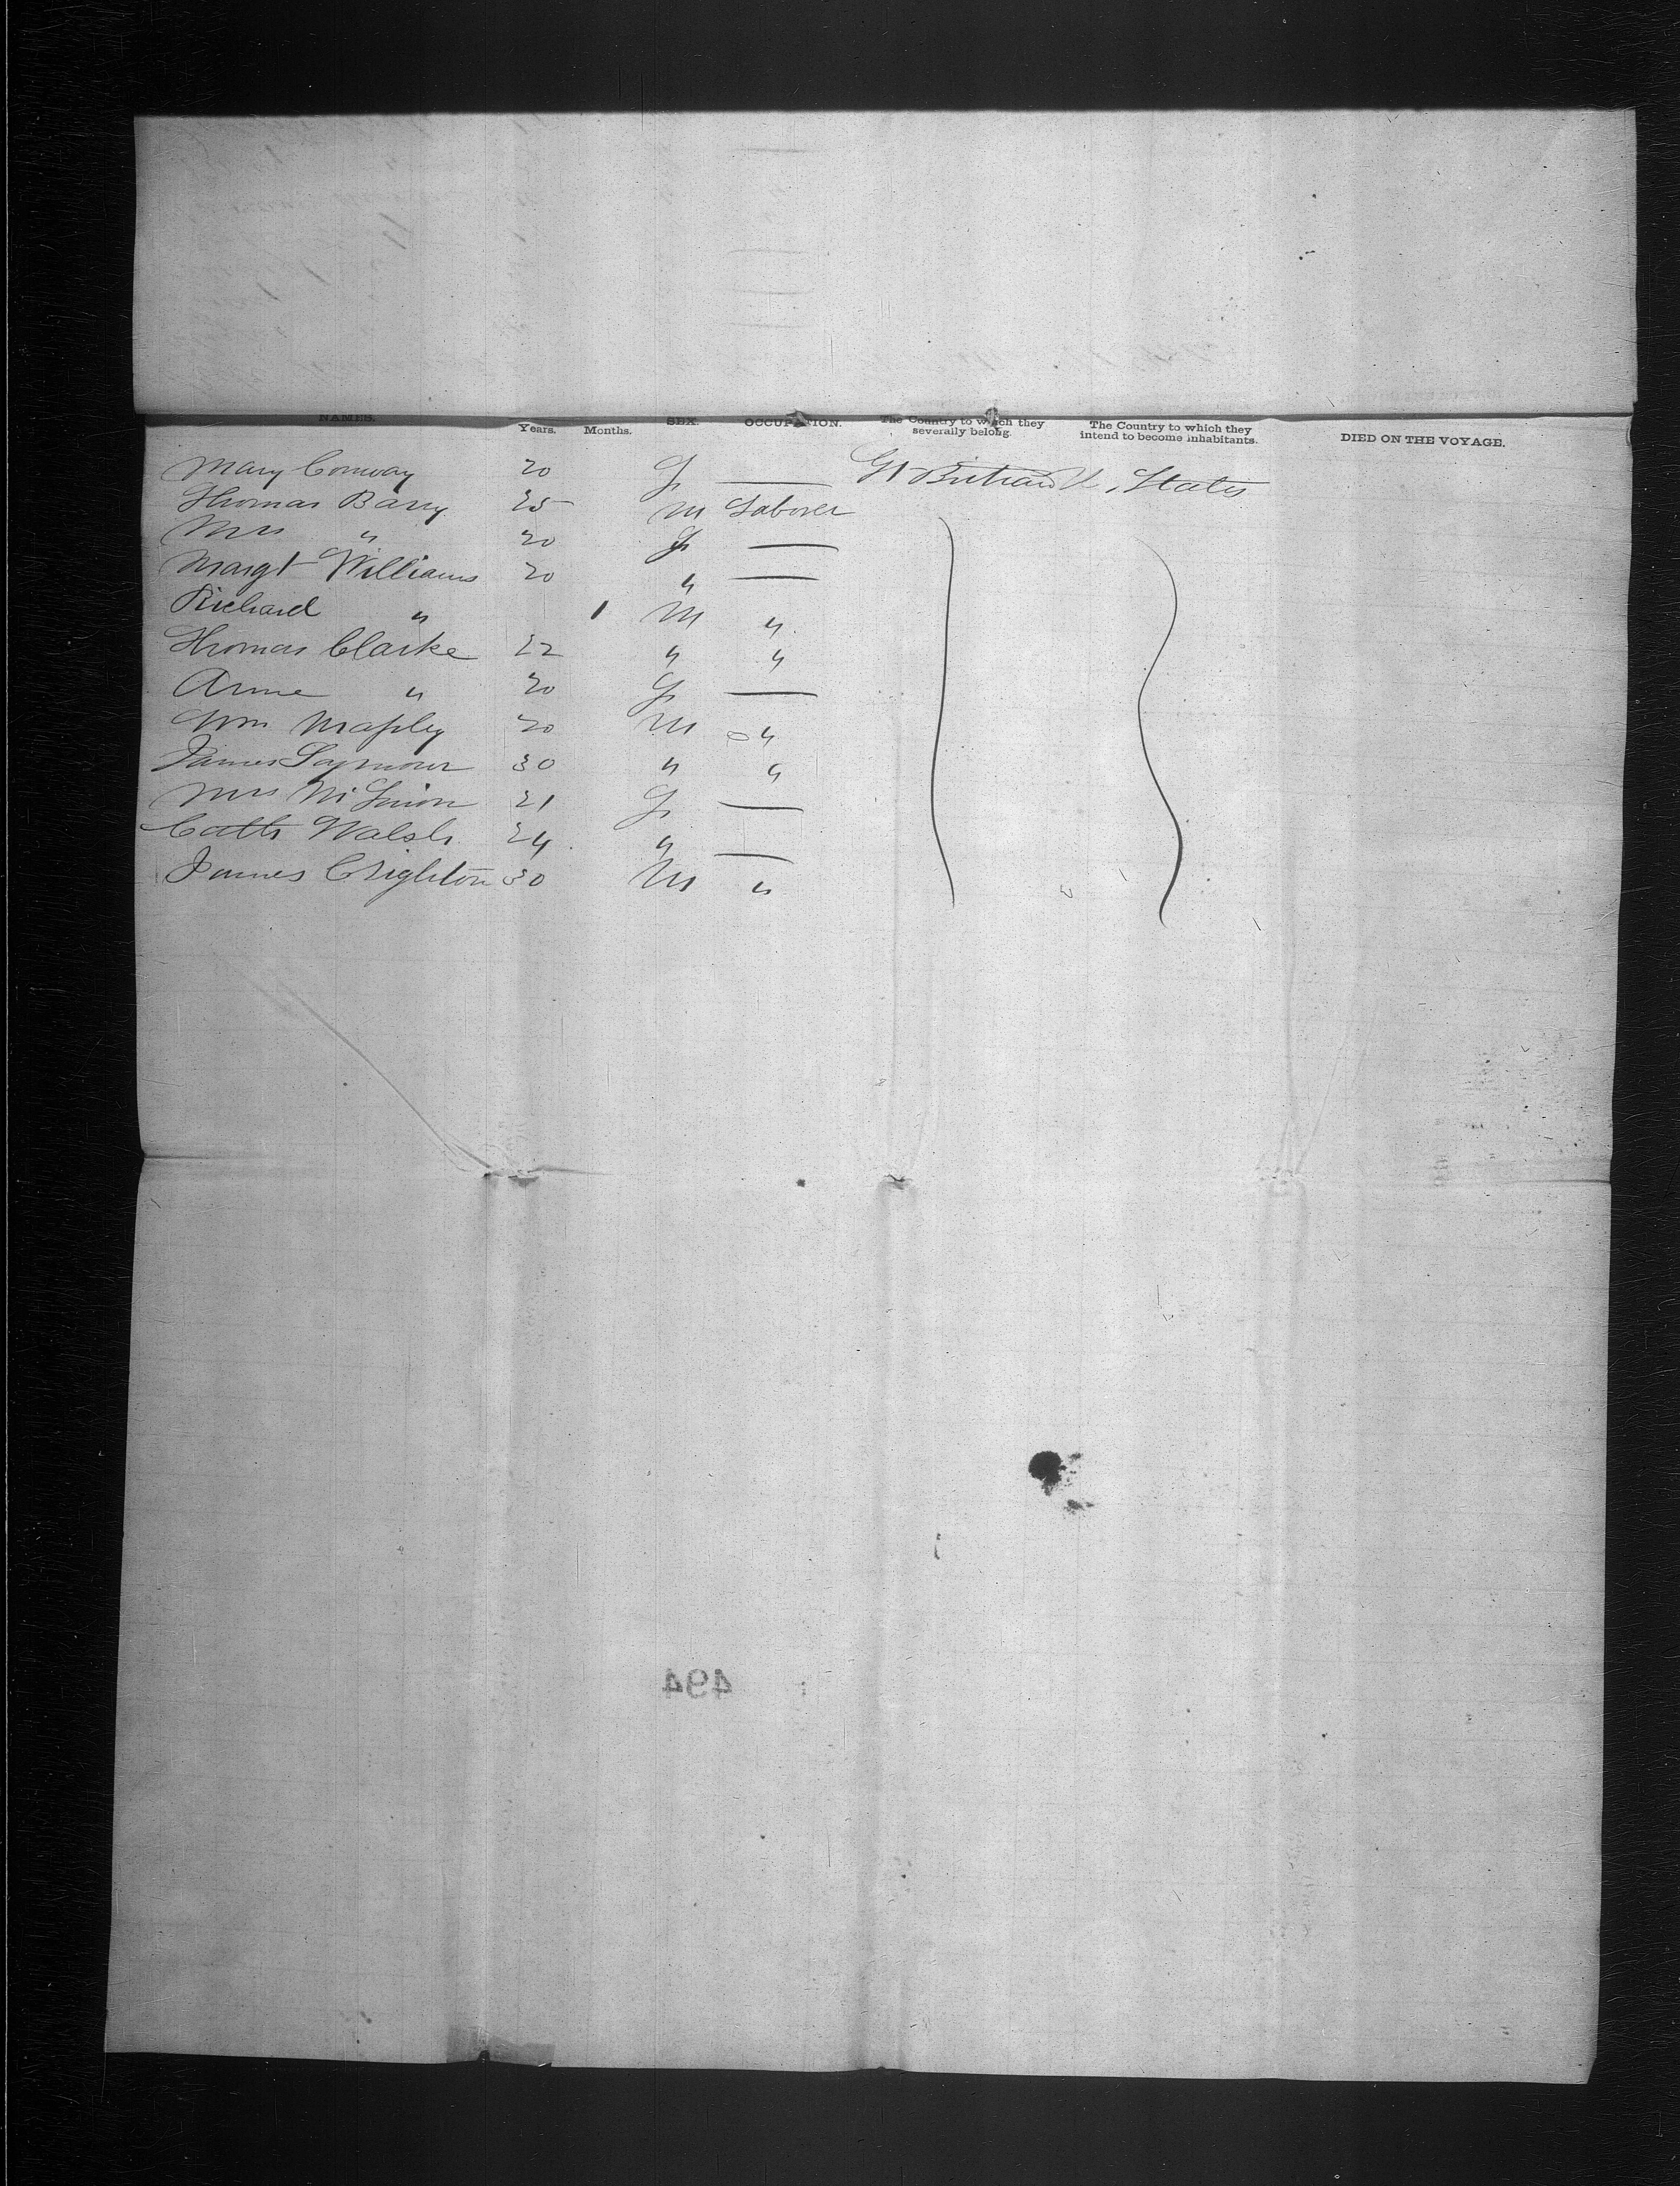 NAMES. Years. Months. SEX. OCCUPATION. The Country to which they severally belong. The Country to which they intend to become inhabitants. DIED ON THE VOYAGE.
Mary Conway 20 F — Gt Britain U. States
Thomas Barry 25 M Laborer
Mrs " 20 F —
Margt Williams 20 " —
Richard " 1 M "
Thomas Clarke 22 " "
Anne " 20 F —
Wm 20 M "
James Seymour 30 " "
Mrs 21 F —
Cath Walsh 24 " —
James Crighton 30 M "
494